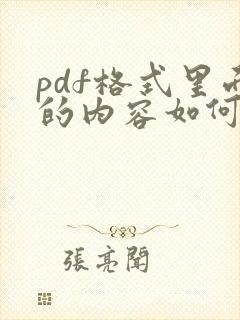 pdf格式里面
的内容如何
張亮聞